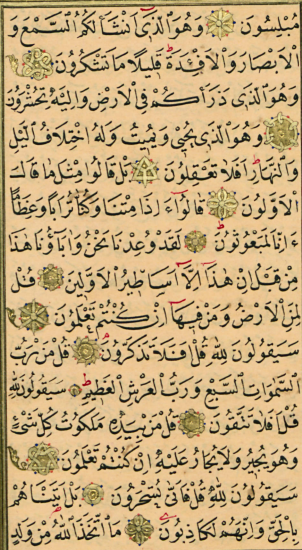 مُبْلِسُونَ وَهُوَ الَّذِي أَنْشَأَ لَكُمُ السَّمْعَ وَ
الْأَبْصَارَ وَالْأَفْئِدَةَ قَلِيلًا مَا تَشْكُرُونَ
وَهُوَ الَّذِي ذَرَأَكُمْ فِي الْأَرْضِ وَإِلَيْهِ تُحْشَرُونَ
وَهُوَ الَّذِي يُحْيِي وَيُمِيتُ وَلَهُ اخْتِلَافُ الَّيْلِ
وَالنَّهَارِ أَفَلَا تَعْقِلُونَ بَلْ قَالُوا مِثْلَ مَا قَالَ
الْأَوَّلُونَ قَالُوا ءَاِذَا مِتْنَا وَكُنَّا تُرَابًا وَعِظَامًا
ءَاِنَّا لَمَبْعُوثُونَ لَقَدْ وُعِدْنَا نَحْنُ وَاٰبَاؤُنَا هٰذَا
مِنْ قَبْلُ إِنْ هٰذَا إِلَّا أَسَاطِيرُ الْأَوَّلِينَ قُلْ
لِمَنِ الْأَرْضُ وَمَنْ فِيهَا إِنْ كُنْتُمْ تَعْلَمُونَ
سَيَقُولُونَ لِلّٰهِ قُلْ أَفَلَا تَذَكَّرُونَ قُلْ مَنْ رَبُّ
السَّمٰوَاتِ السَّبْعِ وَرَبُّ الْعَرْشِ الْعَظِيمِ سَيَقُولُونَ لِلّٰهِ
قُلْ أَفَلَا تَتَّقُونَ قُلْ مَنْ بِيَدِهِ مَلَكُوتُ كُلِّ شَيْءٍ
وَهُوَ يُجِيرُ وَلَا يُجَارُ عَلَيْهِ إِنْ كُنْتُمْ تَعْلَمُونَ
سَيَقُولُونَ لِلّٰهِ قُلْ فَأَنّٰى تُسْحَرُونَ بَلْ أَتَيْنَاهُمْ
بِالْحَقِّ وَإِنَّهُمْ لَكَاذِبُونَ مَا اتَّخَذَ اللّٰهُ مِنْ وَلَدٍ